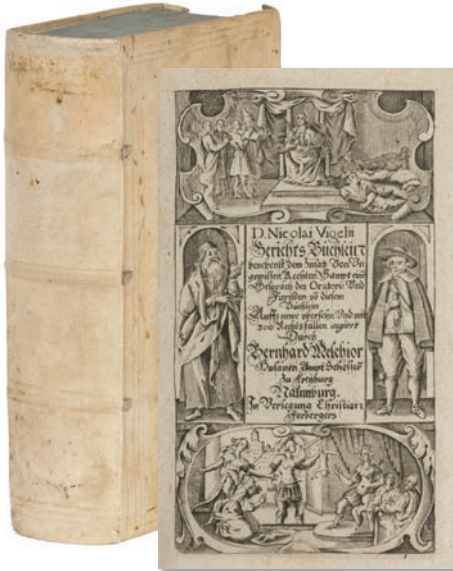 D. Nicolai Vigeln
Gerichts Büchlein
benebenst dem Zusatz Von Un
gewissen Rechten Sampt eine
Gespräch des Oratoris Und
Juristen vō diesem
Büchlein
Auffs newe ubersehn Und mit
200 Rechtsfällen augiert
Durch
Bernhard Melchior
Husanen Ampt Schösser
Zu Freyburg
Naumburg.
In Verlegung Christian
Forbergers